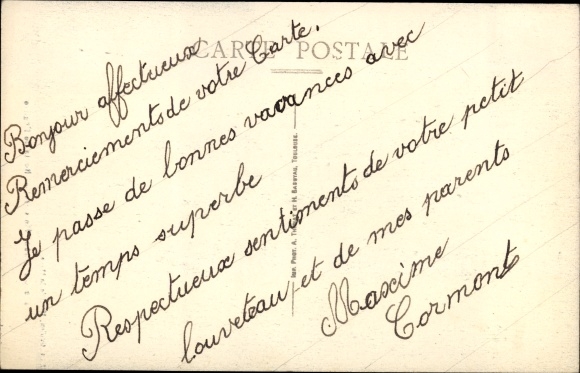 CARTE POSTALE
Bonjour affectueux
Remerciements de votre Carte.
Je passe de bonnes vacances avec
un temps superbe
Respectueux sentiments de votre petit
louveteau et de mes parents
Maxime
Cormont